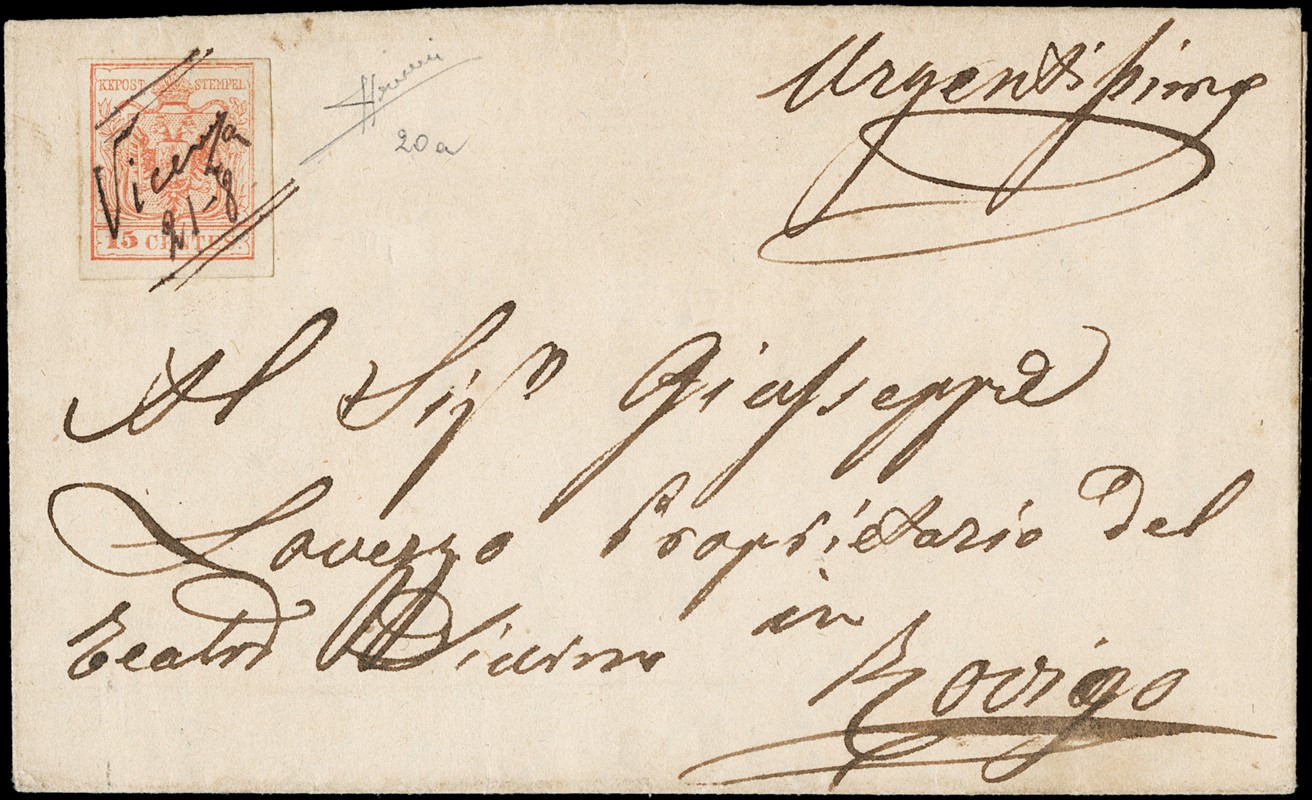 KKPOST STEMPEL
Vicenza
21-8
15 CENTES
20a
Urgentissime
Al Sigr Giuseppe
Loverzo Proprietario del
Teatro Diurno in
Rovigo